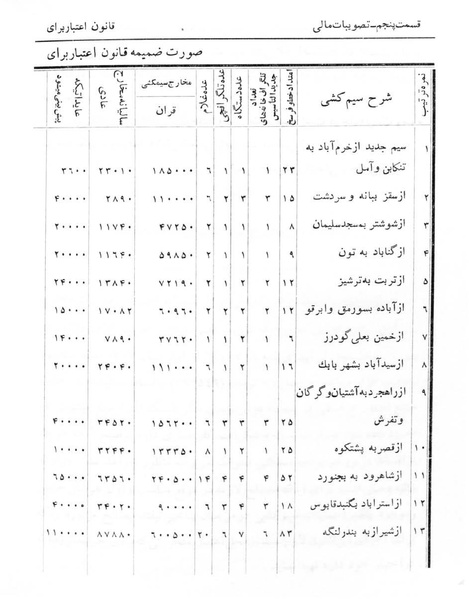 قسمت پنجم_تصویبات مالی قانون اعتبار برای
صورت ضمیمه قانون اعتبار برای
نمره ترتیب شرح سیم کشی امتداد خطوط فرسخ تعداد تلگرافخانه های جدیدالتأسیس عده دستگاه عده تلگرافچی عده غلام مخارج سیمکشی قران سالیانه مخارج عادی عایداتیکه پیش بینی میشود
۱ سیم جدید ازخرم آباد به
تنکابن و آمل ۲۳ ۱ ۱ ۱ ۶ ۱۸۵۰۰۰ ۲۳۰۱۰ ۳۶۰۰
۲ ازسقز ببانه و سردشت ۱۵ ۲ ۳ ۲ ۶ ۱۱۰۰۰۰ ۲۸۹۰ ۴۰۰۰۰
۳ ازشوشتر بمسجدسلیمان ۸ ۱ ۱ ۱ ۲ ۴۷۲۵۰ ۱۱۷۴۰ ۲۰۰۰۰
۴ ازگناباد به تون ۹ ۱ ۱ ۱ ۲ ۵۹۸۵۰ ۱۱۶۴۰ ۲۰۰۰۰
۵ ازتربت به ترشیز ۱۲ ۱ ۲ ۱ ۲ ۷۲۱۹۰ ۱۳۸۴۰ ۲۴۰۰۰
۶ ازآباده بسورمق وابرقو ۱۲ ۲ ۲ ۲ ۲ ۶۰۹۶۰ ۱۷۰۸۲ ۱۵۰۰۰
۷ ازخمین بعلی گودرز ۶ ۱ ۲ ۱ ۱ ۳۷۶۲۰ ۷۸۹۰ ۱۴۰۰۰
۸ ازسیدآباد بشهر بابك ۱۶ ۱ ۱ ۲ ۶ ۱۱۱۰۰۰ ۲۴۰۴۰ ۲۰۰۰۰
۹ ازراهجرد به آشتیان و گرگان
وتفرش ۲۵ ۳ ۲ ۳ ۶ ۱۵۶۲۰۰ ۳۴۵۲۰ ۴۰۰۰۰
۱۰ ازقصر به پشتکوه ۲۵ ۱ ۲ ۱ ۸ ۱۳۳۳۵۰ ۳۲۴۴۰ ۱۰۰۰۰
۱۱ ازشاهرود به بجنورد ۵۲ ۴ ۴ ۴ ۱۴ ۲۴۰۵۰۰ ۶۳۵۶۰ ۶۵۰۰۰
۱۲ ازاستراباد بگنبدقابوس ۱۸ ۳ ۴ ۳ ۶ ۹۰۰۰۰ ۳۴۰۲۰ ۴۰۰۰۰
۱۳ ازشیراز به بندرلنگه ۸۳ ۶ ۷ ۶ ۲۰ ۶۰۰۵۰۰ ۸۷۸۸۰ ۱۱۰۰۰۰